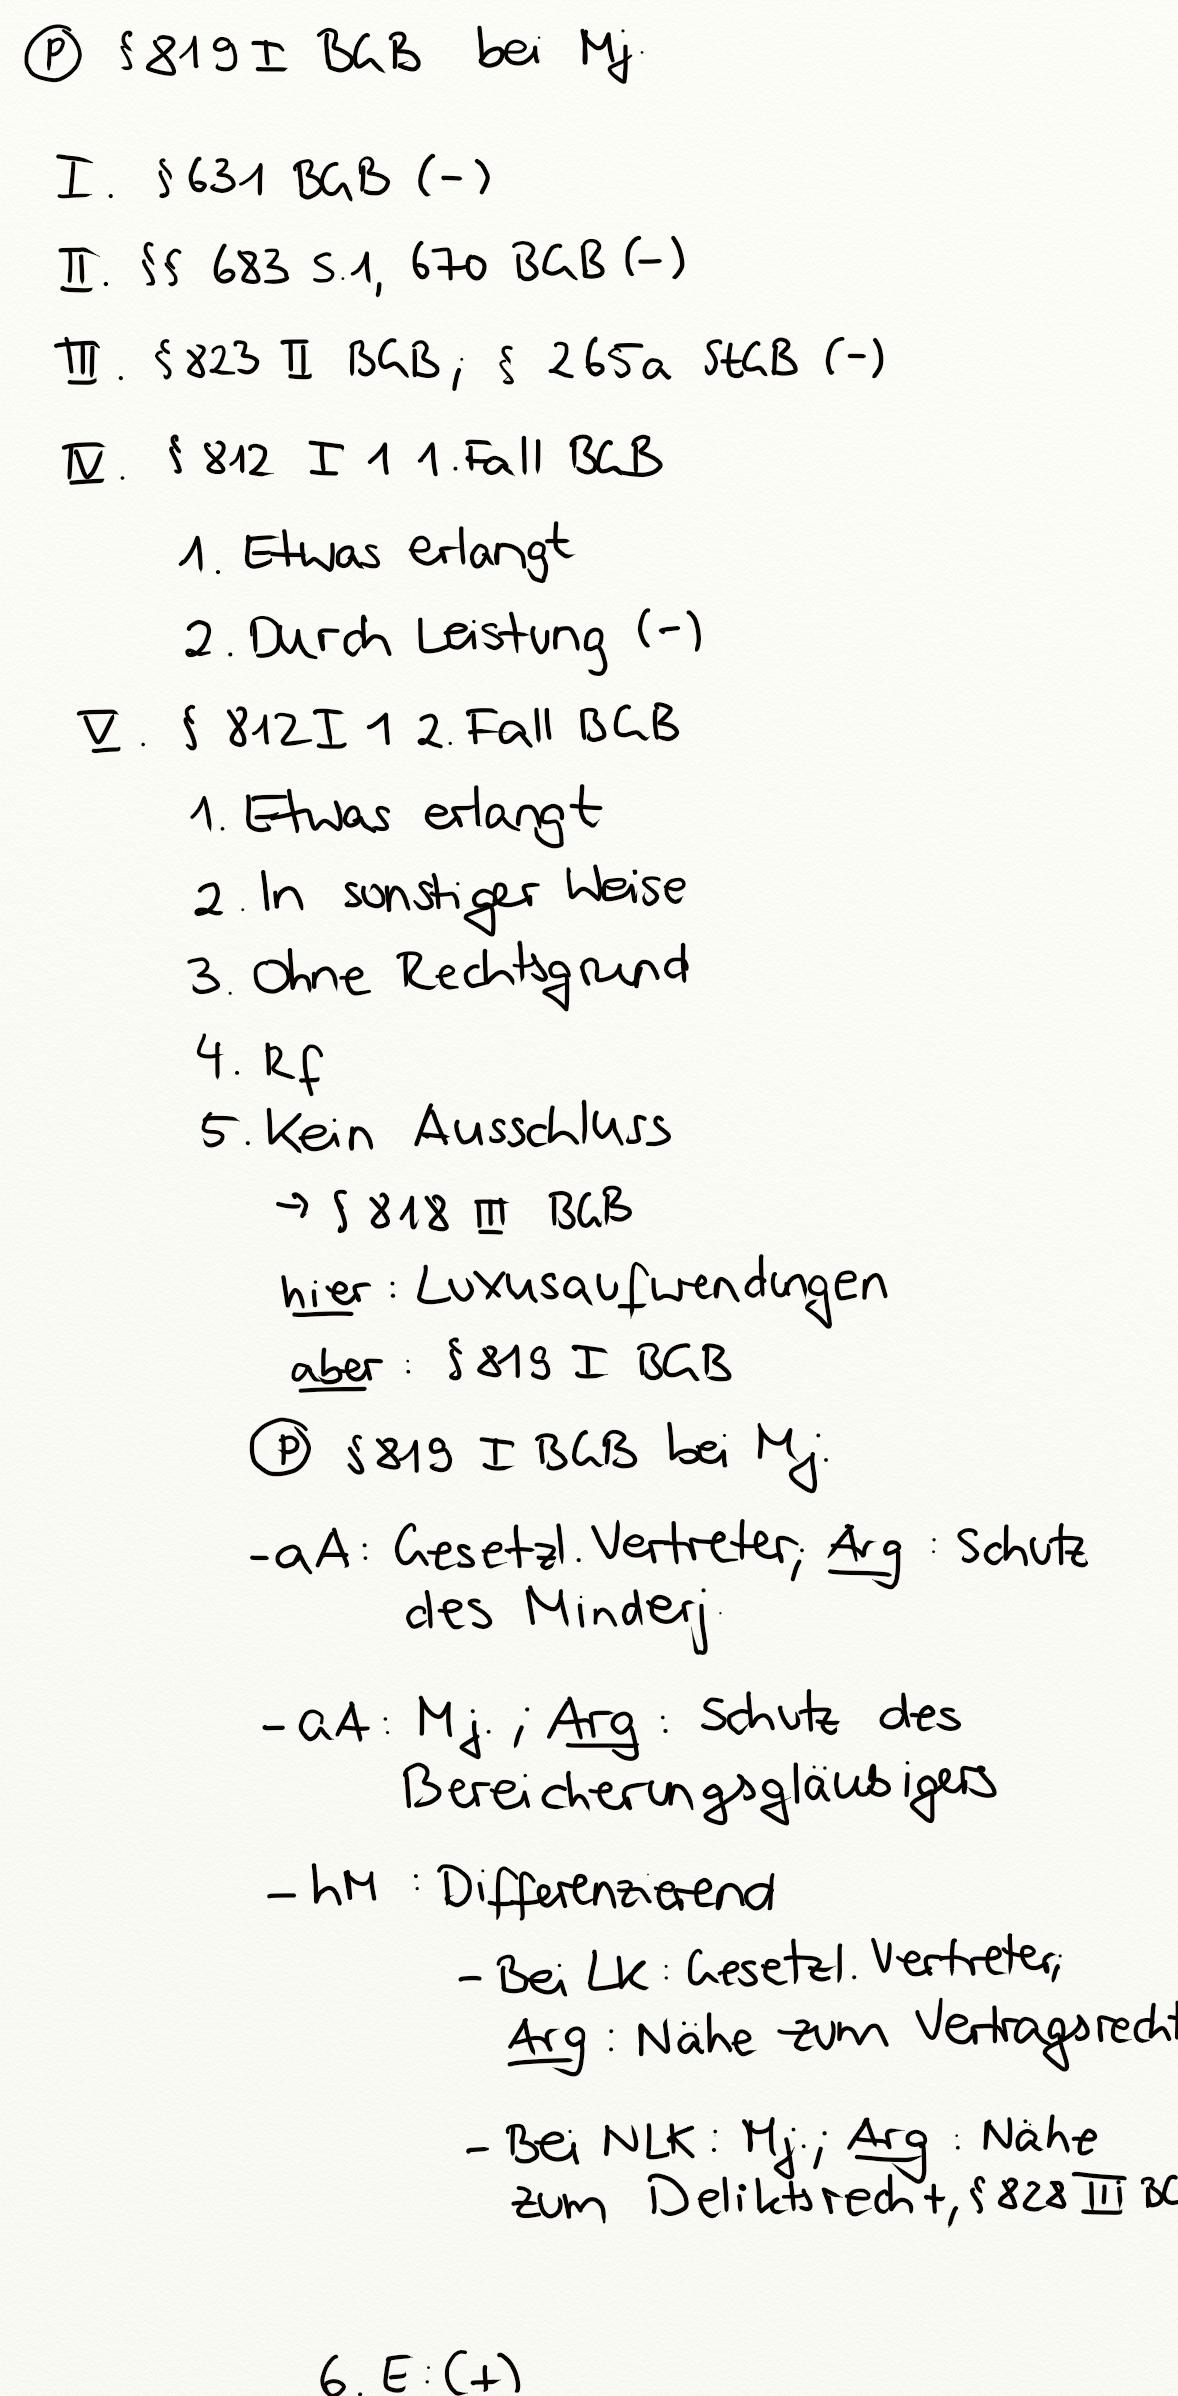 Ⓟ § 819 I BGB bei Mj.
I. § 631 BGB (-)
II. §§ 683 S.1, 670 BGB (-)
III. § 823 II BGB; § 265a StGB (-)
IV. § 812 I 1 1.Fall BGB
1. Etwas erlangt
2. Durch Leistung (-)
V. § 812 I 1 2. Fall BGB
1. Etwas erlangt
2. In sonstiger Weise
3. Ohne Rechtsgrund
4. Rf
5. Kein Ausschluss
→ § 818 III BGB
hier: Luxusaufwendungen
aber: § 819 I BGB
Ⓟ § 819 I BGB bei Mj.
- aA: Gesetzl. Vertreter; Arg: Schutz
des Minderj.
- aA: Mj.; Arg: Schutz des
Bereicherungsgläubigers
- hM: Differenzierend
- Bei LK: Gesetzl. Vertreter;
Arg: Nähe zum Vertragsrecht
- Bei NLK: Mj.; Arg: Nähe
zum Deliktsrecht, § 828 III BG
6. E: (+)